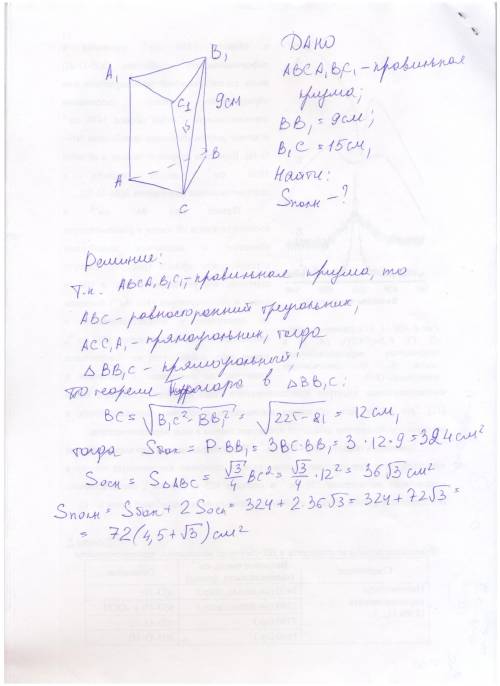 B₁
A₁
C₁
9см
15
A
B
C
ДАНО
ABCA₁B₁C₁ - правильная
призма;
BB₁ = 9см;
B₁C = 15см,
Найти:
Sполн - ?
Решение:
Т.к. ABCA₁B₁C₁ - правильная призма, то
ABC - равносторонний треугольник,
ACC₁A₁ - прямоугольник, тогда
△BB₁C - прямоугольный;
По теореме Пифагора в △BB₁C:
BC = √(B₁C² - BB₁²) = √(225 - 81) = 12см,
тогда Sбок = P·BB₁ = 3BC·BB₁ = 3·12·9 = 324 см²
Sосн = S△ABC = √3/4 BC² = √3/4 ·12² = 36√3 см²
Sполн = Sбок + 2Sосн = 324 + 2·36√3 = 324 + 72√3 =
= 72(4,5 + √3) см²